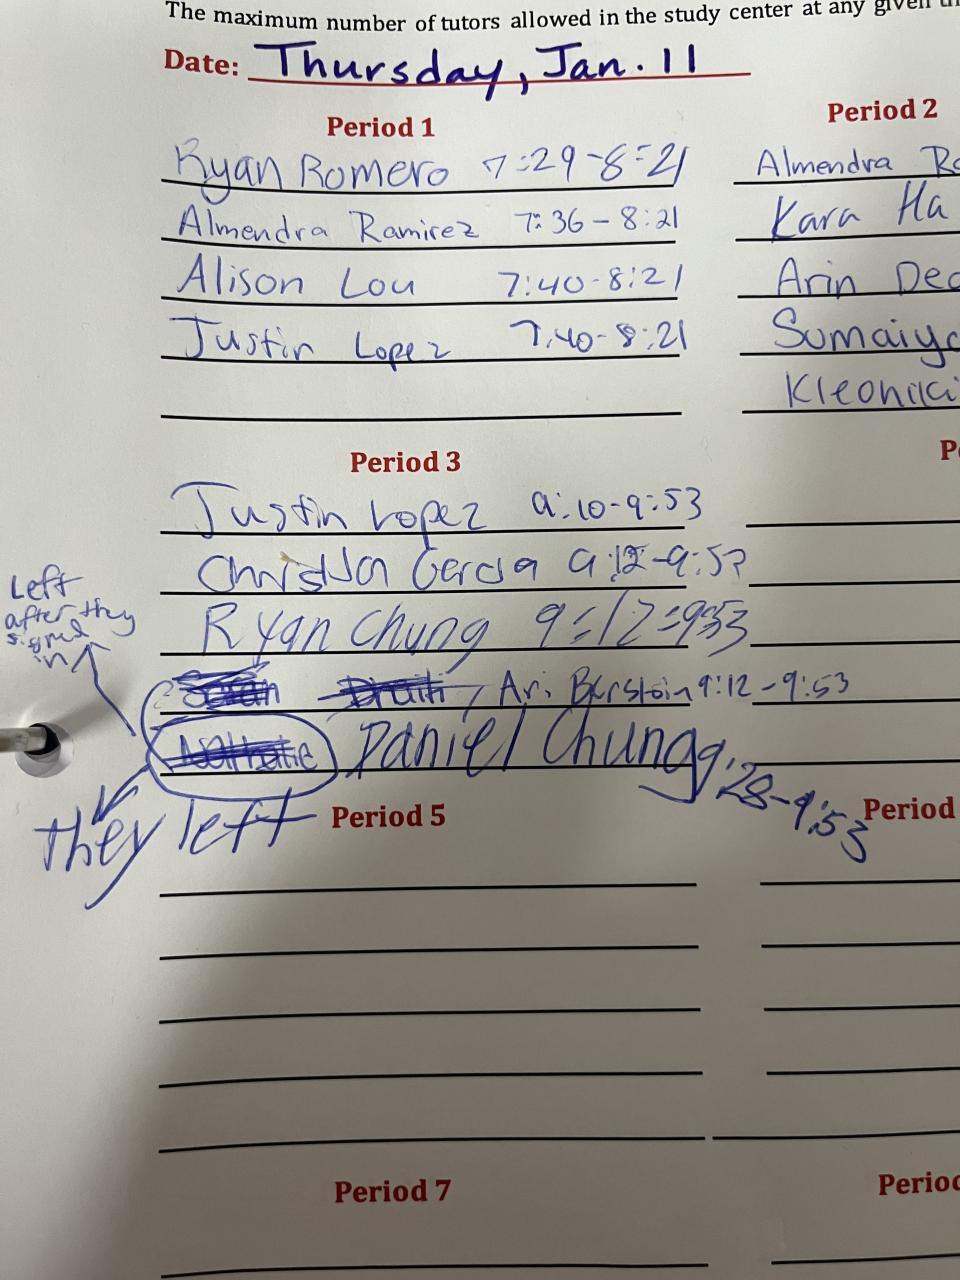 The maximum number of tutors allowed in the study center at any given
Date: Thursday, Jan. 11
Period 1
Ryan Romero 7:29-8:21
Almendra Ramirez 7:36-8:21
Alison Lou 7:40-8:21
Justin Lopez 7:40-8:21
Period 2
Almendra
Kara Ha
Arin
Sumaiya
Kleoniki
Period 3
Justin Lopez 9:10-9:53
Garcia 9:12-9:53
Ryan Chung 9:12-9:53
Ari Burstein 9:12-9:53
Daniel Chung 9:28-9:53
Left
after they
signed
in
They left
Period 5
Period
Period 7